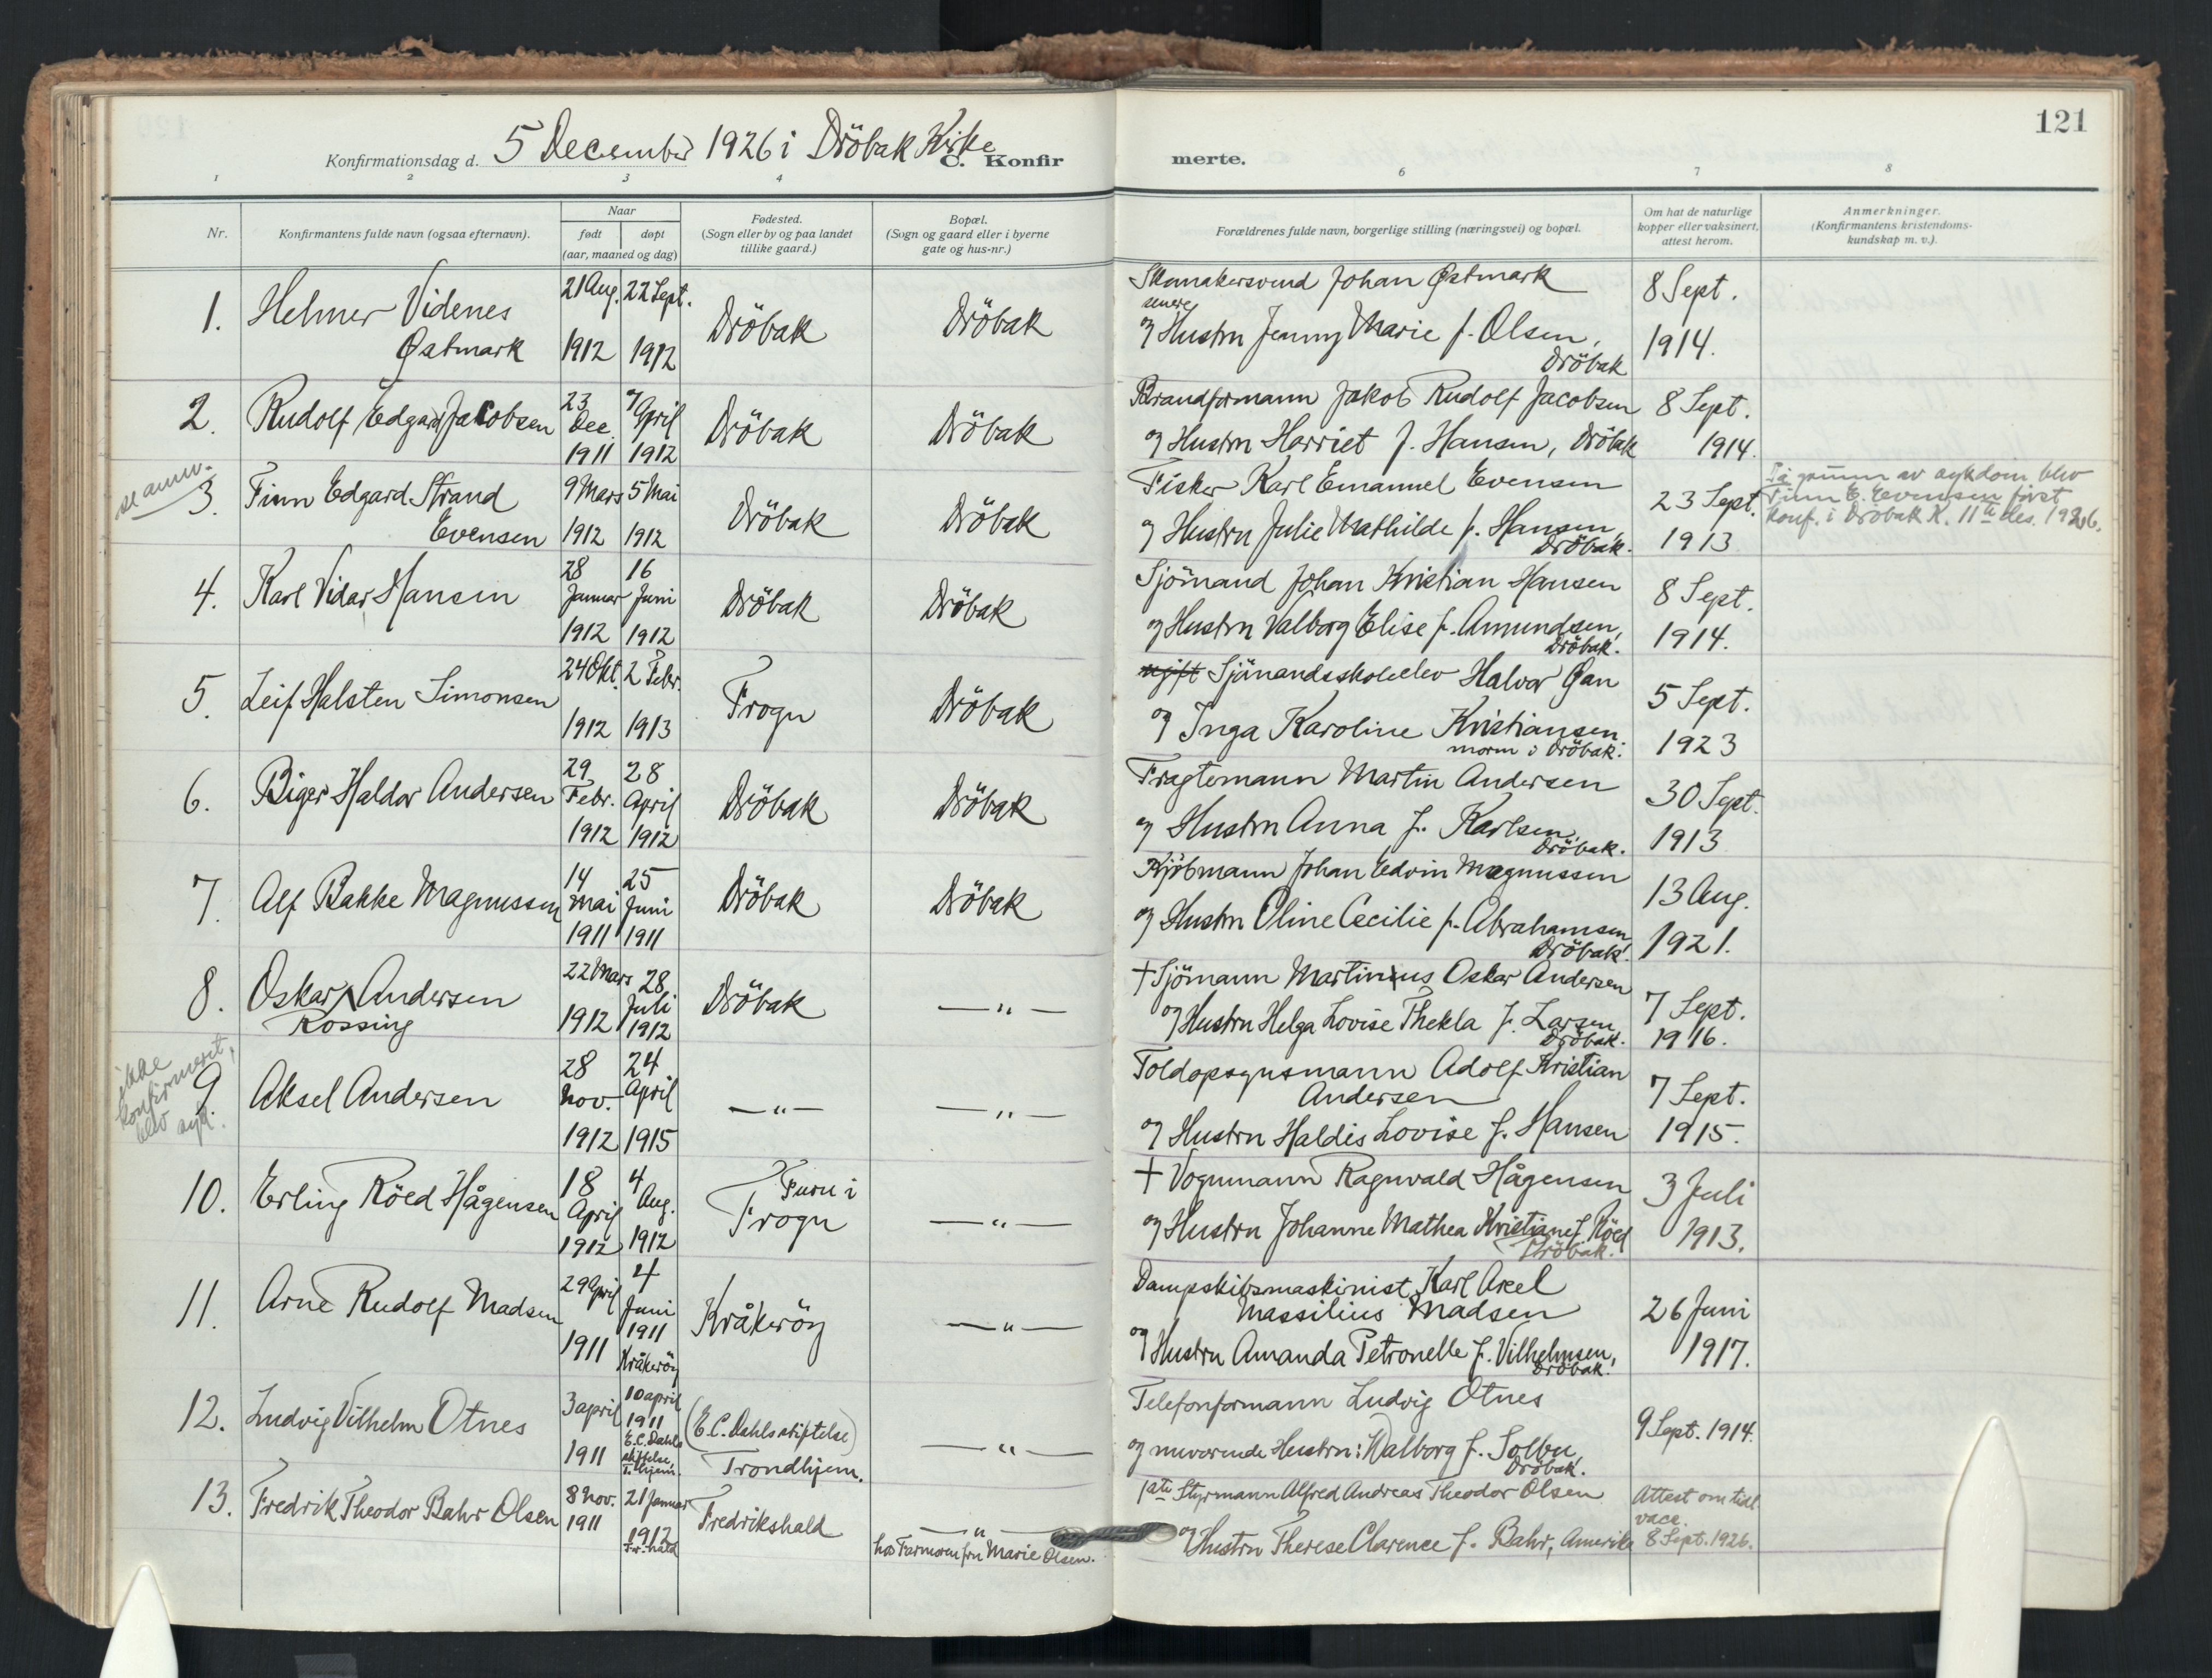 121
Konfirmationsdag d. 5 December 1926 i Dröbak Kirke
C. Konfirmerte.
1 2 3 4 6 7 8
Nr.
Konfirmantens fulde navn (ogsaa efternavn).
Naar
født døpt
(aar, maaned og dag)
Fødested.
(Sogn eller by og paa landet
tillike gaard.)
Bopæl.
(Sogn og gaard eller i byerne
gate og hus-nr.)
Forældrenes fulde navn, borgerlige stilling (næringsvei) og bopæl.
Om hat de naturlige
kopper eller vaksinert,
attest herom.
Anmerkninger.
(Konfirmantens kristendoms-
kundskap m. v.).
1. Helmer Videnes
Østmark
21 Aug. 1912
22 Sept. 1912
Dröbak
Dröbak
Skomakersvend Johan Østmark
senere
og Hustru Jenny Marie f. Olsen,
Dröbak
8 Sept.
1914.
2. Rudolf Edgar Jacobsen
23 Dec. 1911
7 April 1912
Dröbak
Dröbak
Brandformann Jakob Rudolf Jacobsen
og Hustru Harriet f. Hansen, Dröbak
8 Sept.
1914.
se anm.
3. Finn Edgard Strand
Evensen
9 Mars 1912
5 Mai 1912
Dröbak
Dröbak
Fisker Karl Emanuel Evensen
og Hustru Julie Mathilde f. Hansen,
Dröbak.
23 Sept.
1913
På grunn av sykdom blev
Finn E. Evensen först
konf. i Dröbak K. 11te des. 1926.
4. Karl Vidar Hansen
28 Januar 1912
16 Juni 1912
Dröbak
Dröbak
Sjömand Johan Kristian Hansen
og Hustru Valborg Elise f. Amundsen,
Dröbak.
8 Sept.
1914.
5. Leif Halsten Simonsen
24 Okt. 1912
2 Febr. 1913
Frogn
Dröbak
ugift Sjömandsskoleelev Halvor Gan
og Inga Karoline Kristiansen
morm i Dröbak.
5 Sept.
1923
6. Biger Haldor Andersen
29 Febr. 1912
28 April 1912
Dröbak
Dröbak
Fragtemann Martin Andersen
og Hustru Anna f. Karlsen,
Dröbak.
30 Sept.
1913
7. Alf Bakke Magnussen
14 Mai 1911
25 Juni 1911
Dröbak
Dröbak
Kjöbmann Johan Edvin Magnussen
og Hustru Oline Cecilie f. Abrahamsen
Dröbak.
13 Aug.
1921.
8. Oskar Andersen
Rossing
22 Mars 1912
28 Juli 1912
Dröbak
— " —
† Sjömann Martinius Oskar Andersen
og Hustru Helga Lovise Thekla f. Larsen
Dröbak.
7 Sept.
1916.
ikke
konfirmeret,
blev syk.
9. Aksel Andersen
28 Nov. 1912
24 April 1915
— " —
— " —
Toldopsynsmann Adolf Kristian
Andersen
og Hustru Haldis Lovise f. Hansen
7 Sept.
1915.
10. Erling Röed Hågensen
18 April 1912
4 Aug. 1912
Furu i
Frogn
— " —
† Vognmann Ragnvald Hågensen
og Hustru Johanne Mathea Kristiane f. Röed
Dröbak.
3 Juli
1913.
11. Arne Rudolf Madsen
29 April 1911
4 Juni 1911
Kråkeröy
Kråkeröy
— " —
Dampskibsmaskinist Karl Axel
Massilius Madsen
og Hustru Amanda Petronelle f. Vilhelmsen,
Dröbak.
26 Juni
1917.
12. Ludvig Vilhelm Otnes
3 april 1911
10 april
1911
E.C. Dahls
stiftelse,
T.hjem.
(E.C. Dahls stiftelse)
Trondhjem.
— " —
Telefonformann Ludvig Otnes
og nuværende Hustru: Valborg f. Solbu,
Dröbak.
9 Sept. 1914.
13. Fredrik Theodor Bahr Olsen
8 Nov. 1911
21 Januar
1912
Fr.hald
Fredrikshald
— " —
hos Farmoren fru Marie Olsen.
1ste Styrmann Alfred Andreas Theodor Olsen
og Hustru Therese Clarence f. Bahr, Amerika
Attest om
vacc.
8 Sept. 1926.